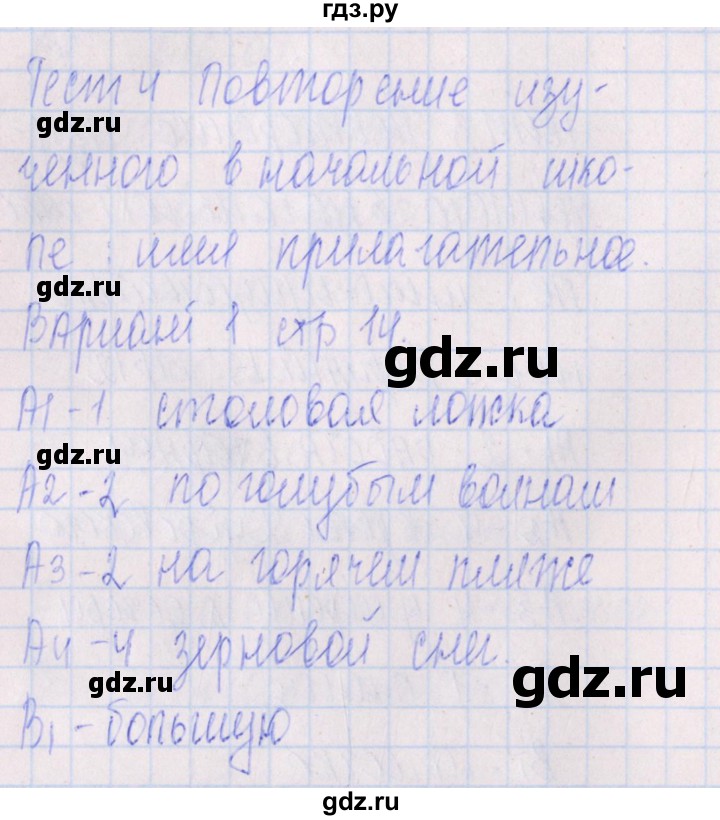 гдз.ру
Тест 4 Повторение изу-
gdz.ru
ченного в начальной шко-
ле: имя прилагательное.
gdz.ru
Вариант 1 стр 14.
gdz.ru
А1-1 столовая ложка
gdz.ru
А2-2 по голубым волнам
А3-2 на горячем пляже
А4-4 зерновой снег.
gdz.ru
gdz.ru
В1-большую
gdz.ru